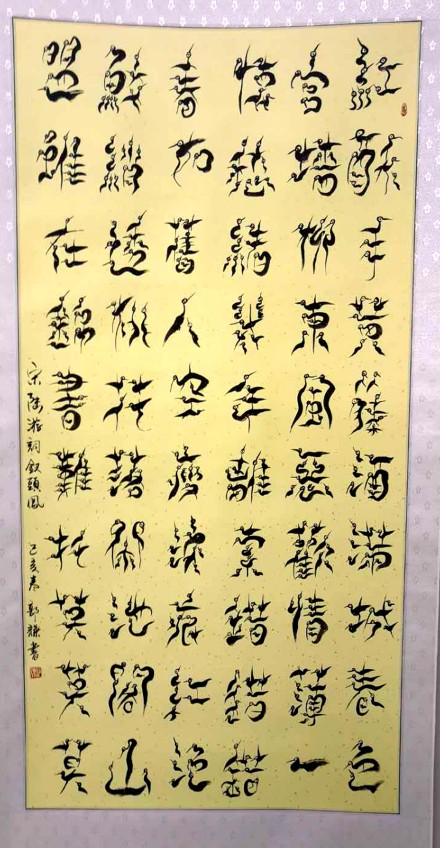 紅酥手黄藤酒滿城春色
宫墙柳東風惡歡情薄一
懷愁緒幾年離索錯錯錯
春如舊人空瘦淚痕紅浥
鮫綃透桃花落閑池閣山
盟雖在錦書難托莫莫莫
宋陸游詞釵頭鳳 己亥春 書